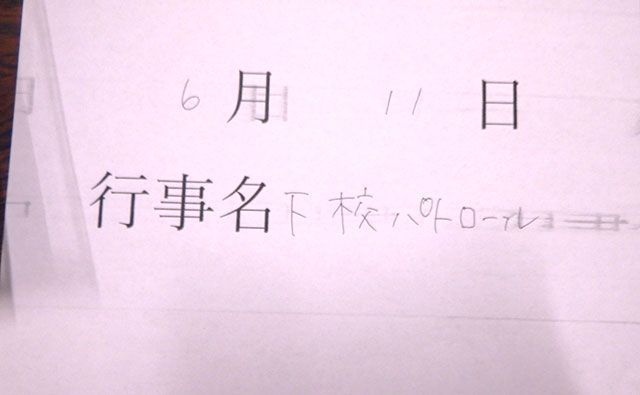 6月 11日
行事名 下校パトロール